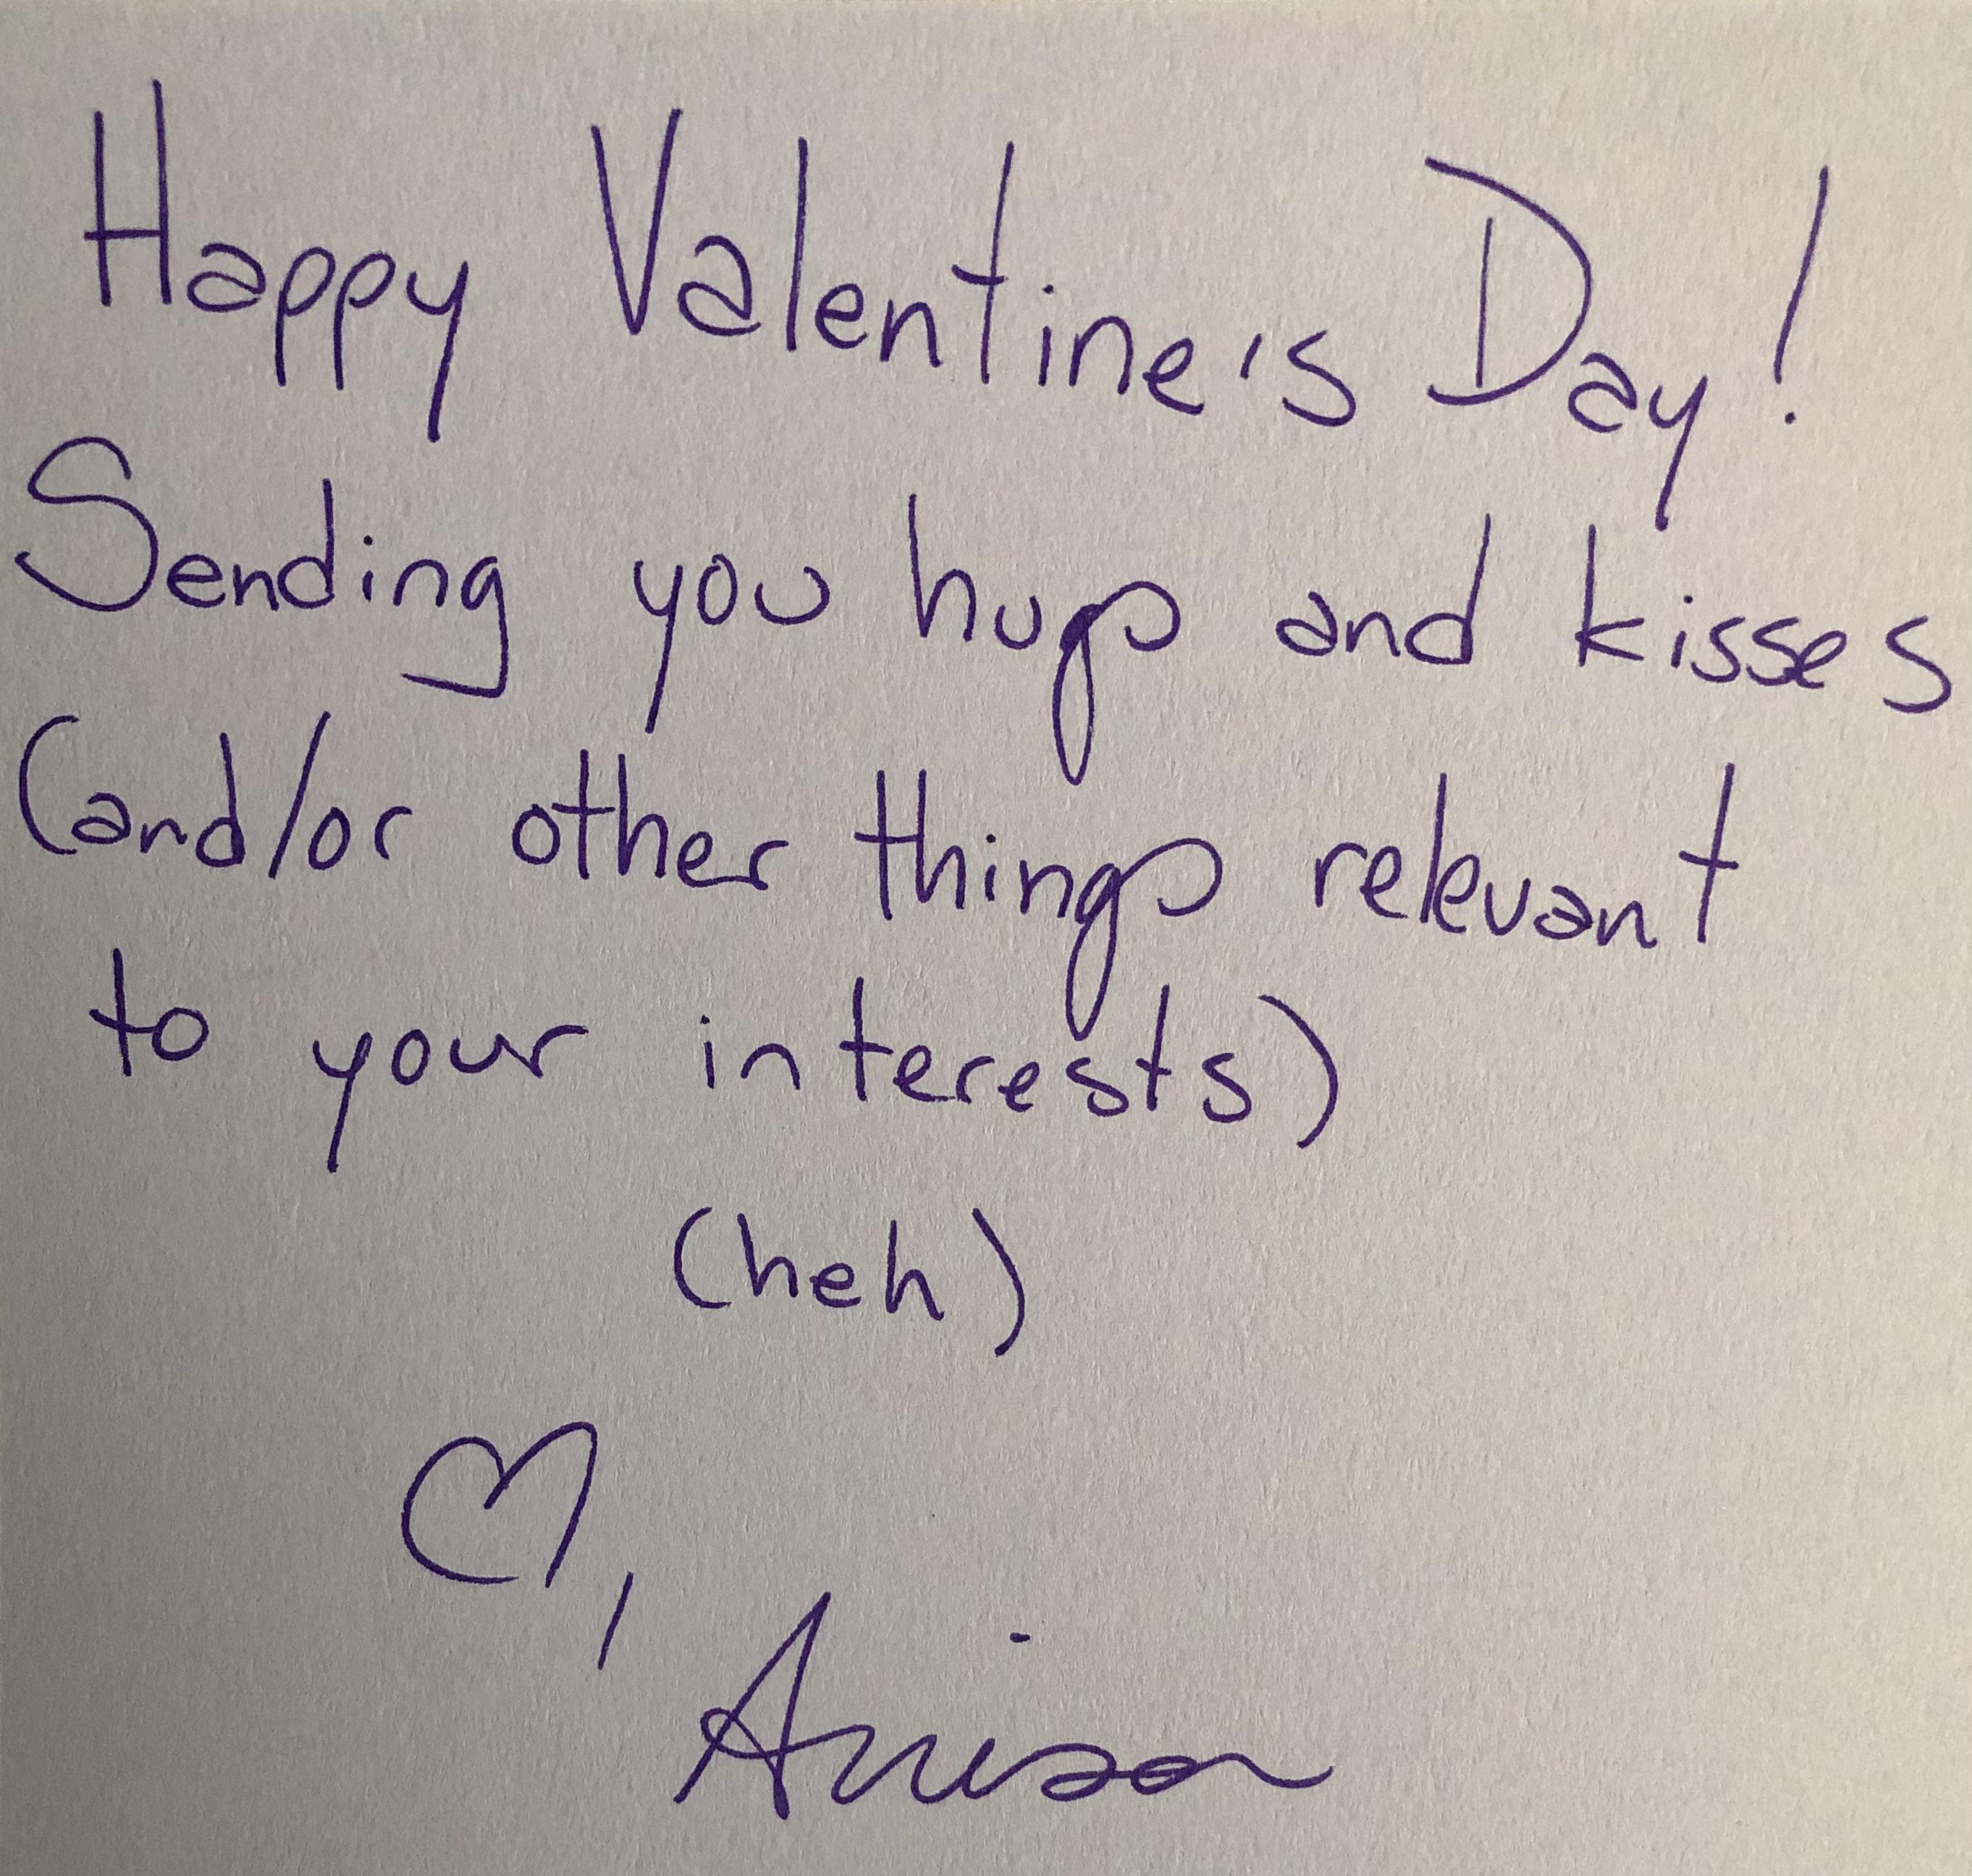 Happy Valentine's Day!
Sending you hugs and kisses
(and/or other things relevant
to your interests)
(heh)
♡,